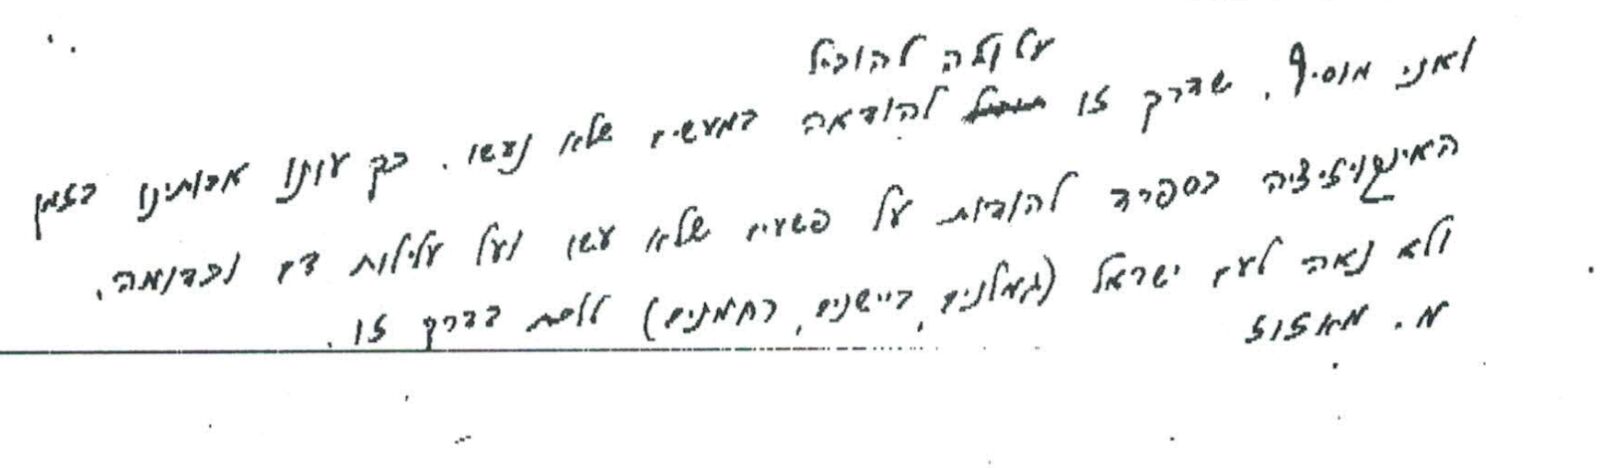 עלולה להוביל
ואני מוסיף, שדרך זו להודאה במעשים שלא נעשו. כך עונו אבותינו בזמן
האינקויזיציה בספרד להודות על פשעים שלא עשו ועל עלילות דם וכדומה.
ולא נאה לעם ישראל (גמלנים, ביישנים, רחמנים) ללכת בדרך זו.
מ. מאזוז